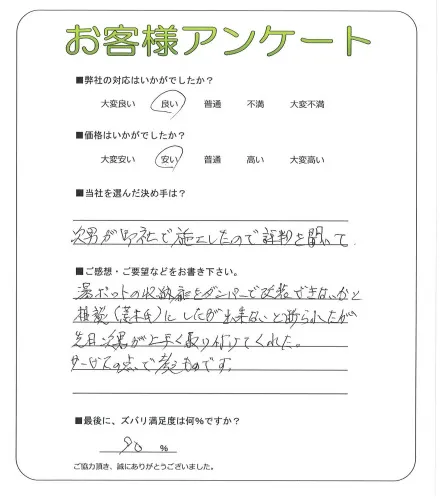 お客様アンケート
■弊社の対応はいかがでしたか？
大変良い 良い 普通 不満 大変不満
■価格はいかがでしたか？
大変安い 安い 普通 高い 大変高い
■当社を選んだ決め手は？
次男が御社で施工したので評判を聞いて.
■ご感想・ご要望などをお書き下さい。
湯ポットの収納庫をダンパーで改装できないかと
相談（）にしたが出来ないと断られたが
先日次男が上手く取り付けてくれた。
サービスの点で考えものです。
■最後に、ズバリ満足度は何％ですか？
90 ％
ご協力頂き、誠にありがとうございました。